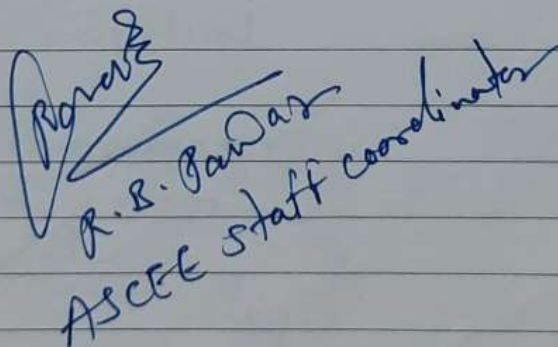 R. B. Pawar
ASCEE staff coordinator